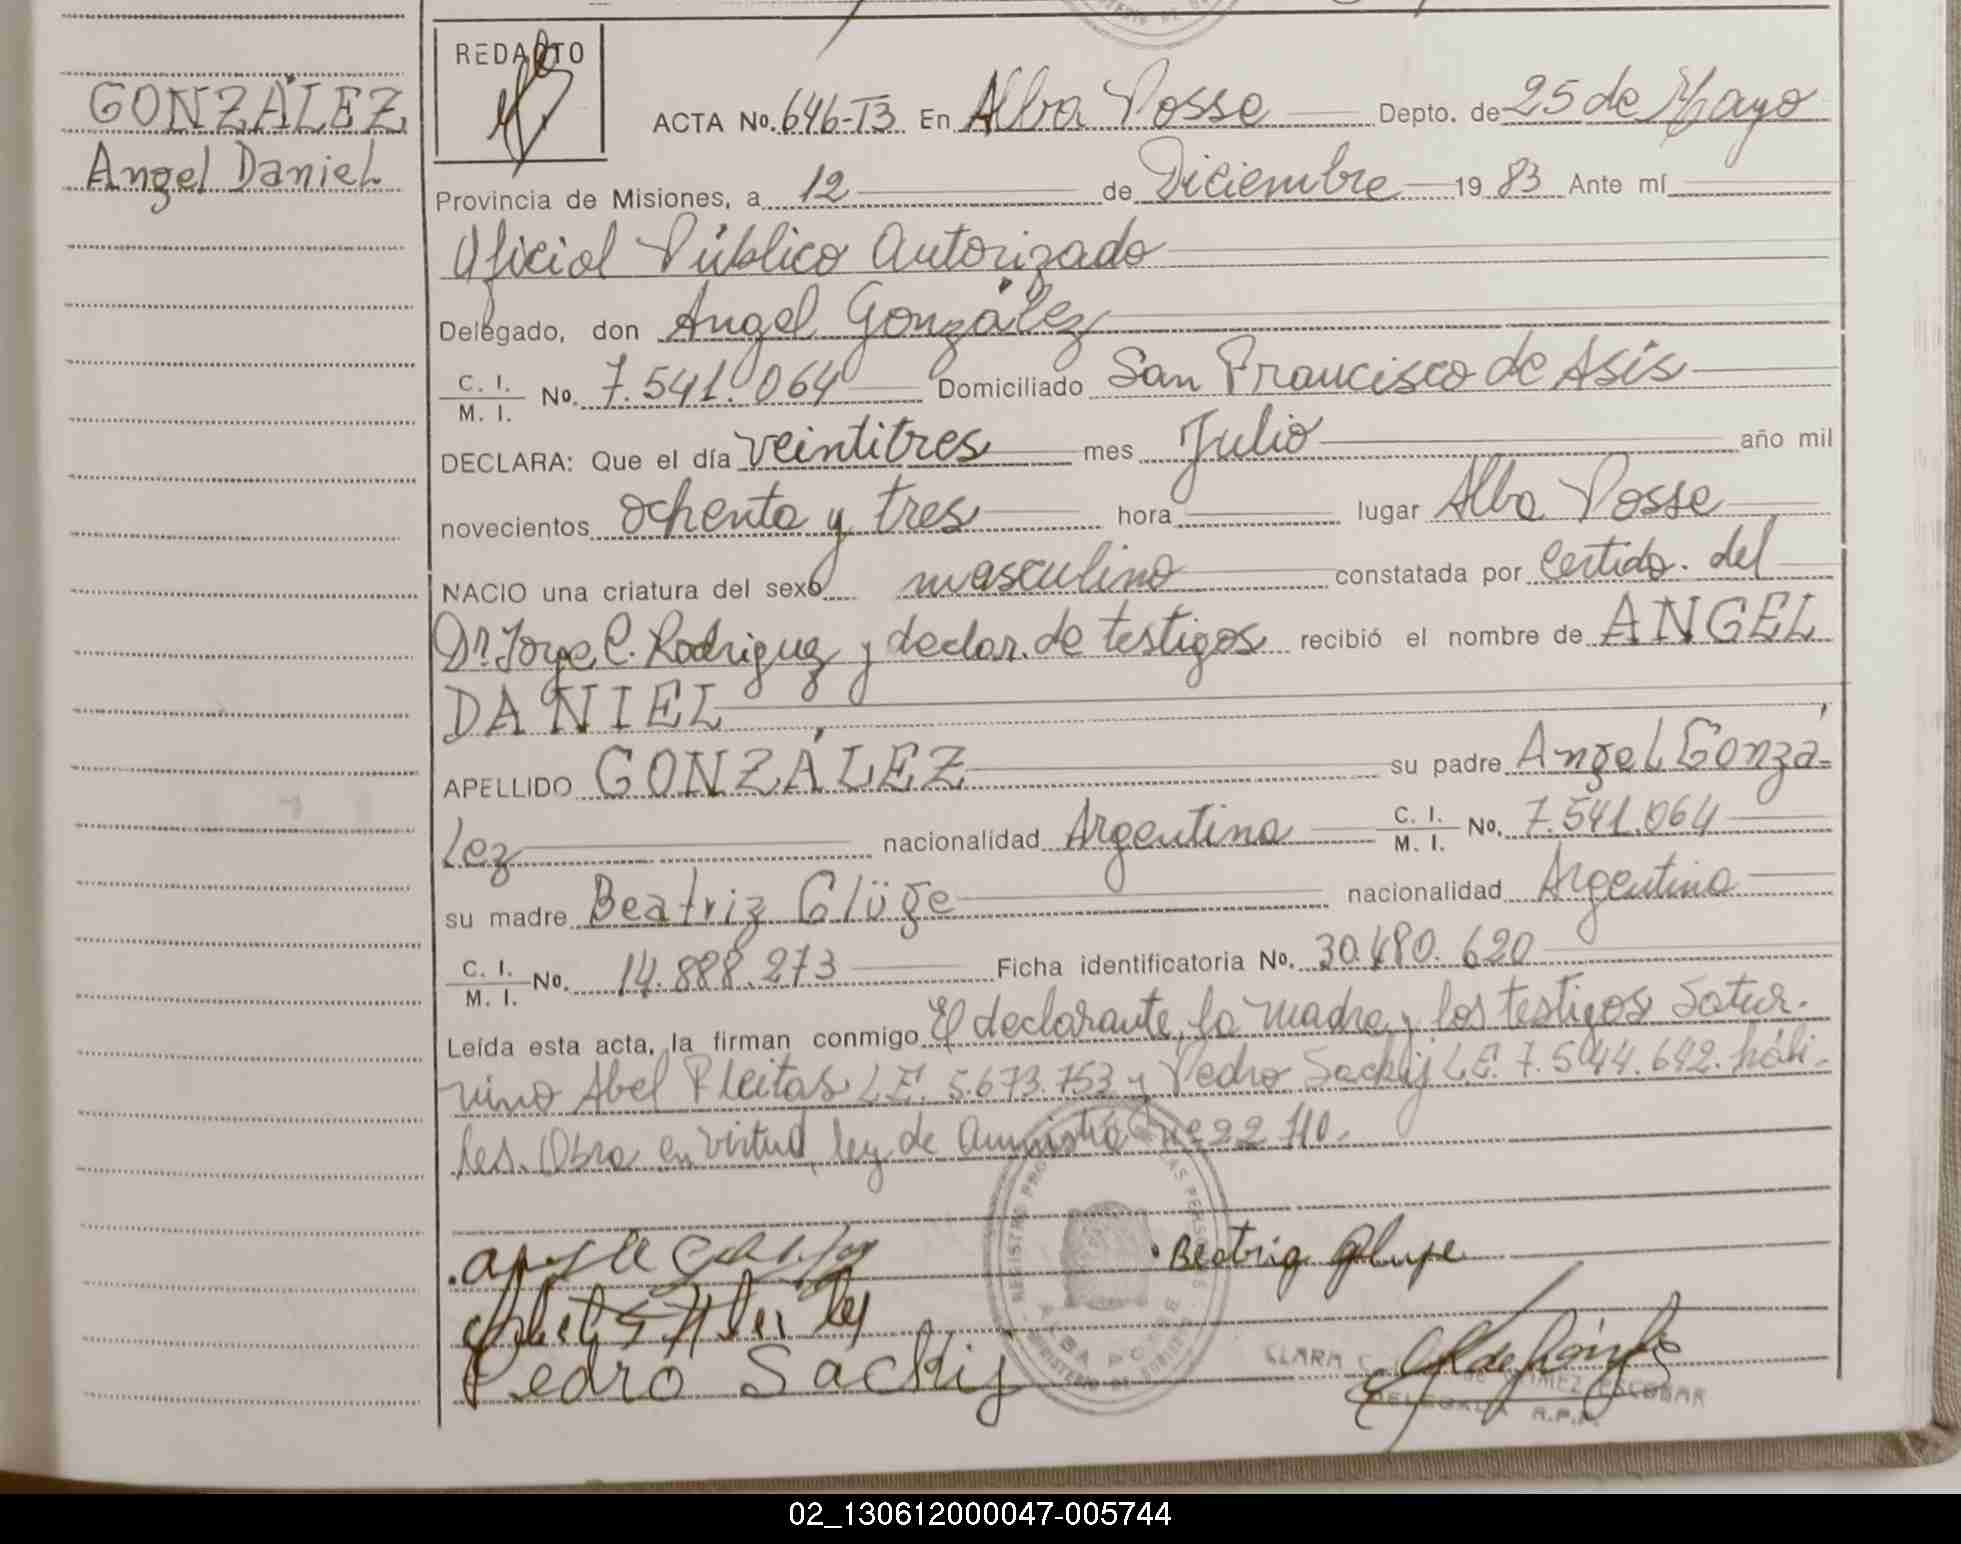 GONZÁLEZ
Angel Daniel
REDACTO
ACTA No. 646-T3 En Alba Posse Depto. de 25 de Mayo
Provincia de Misiones, a 12 de Diciembre 19 83 Ante mí
Oficial Público Autorizado
Delegado, don Angel González
C. I. M. I. No. 7.541.064 Domiciliado San Francisco de Asís
DECLARA: Que el día veintitres mes Julio año mil
novecientos ochenta y tres hora lugar Alba Posse
NACIO una criatura del sexo masculino constatada por Certido. del
Dr. Jorge C. Rodriguez y declar. de testigos recibió el nombre de ANGEL
DANIEL
APELLIDO GONZÁLEZ su padre Angel Gonzá-
lez nacionalidad Argentina C. I. M. I. No. 7.541.064
su madre Beatriz Glüge nacionalidad Argentina
C. I. M. I. No. 14.888.273 Ficha identificatoria No. 30.480.620
Leída esta acta, la firman conmigo El declarante, la madre y los testigos Satur-
nino Abel Fleitas L.E. 5.673.753 y Pedro Sackij L.E. 7.544.642. hábi-
les. Obra en virtud ley de Amnistía nº 22.710.
Beatriz Gluge
Pedro Sackij
REGISTRO PERSONAS
ALBA POSSE
MINISTERIO DE GOBIERNO
CLARA DE GAMEZ ESCOBAR
DELEGADA R.P.P.
02_130612000047-005744